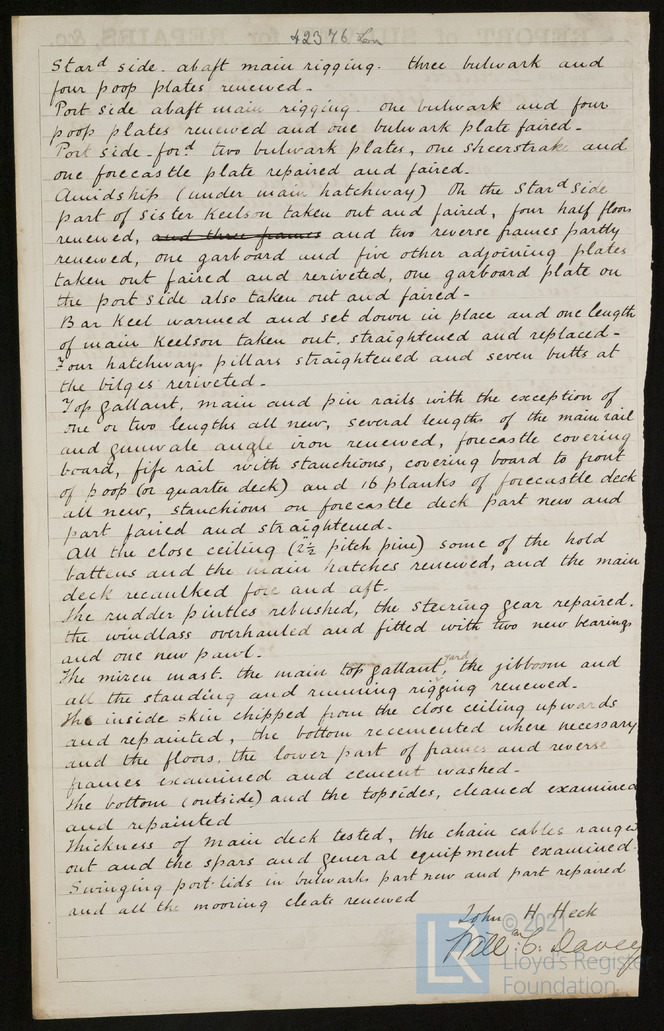 42376 Lon
Star^d side. abaft main rigging. three bulwark and
four poop plates renewed.
Port side abaft main rigging. one bulwark and four
poop plates renewed and one bulwark plate faired.
Port side for^d two bulwark plates, one sheerstrake and
one forecastle plate repaired and faired.
Amidship (under main hatchway) On the Star^d side
part of sister Keelson taken out and faired, four half floors
renewed, and three frames and two reverse frames partly
renewed, one garboard and five other adjoining plates
taken out faired and reriveted, one garboard plate on
the port side also taken out and faired.
Bar Keel warmed and set down in place and one length
of main Keelson taken out, straightened and replaced.
Four hatchway pillars straightened and seven butts at
the bilges reriveted.
Top gallant, main and pin rails with the exception of
one or two lengths all new, several lengths of the main rail
and gunwale angle iron renewed, forecastle covering
board, fife rail with stanchions, covering board to front
of poop (or quarter deck) and 16 planks of forecastle deck
all new, stanchions on forecastle deck part new and
part faired and straightened.
All the close ceiling (2½" pitch pine) some of the hold
battens and the main hatches renewed, and the main
deck recaulked fore and aft.
The rudder pintles rebushed, the steering gear repaired.
the windlass overhauled and fitted with two new bearings
and one new pawl.
The mizen mast. the main top gallant yard, the jibboom and
all the standing and running rigging renewed.
The inside skin chipped from the close ceiling upwards
and repainted, the bottom recemented where necessary
and the floors, the lower part of frames and reverse
frames examined and cement washed.
The bottom (outside) and the topsides, cleaned examined
and repainted
Thickness of main deck tested, the chain cables ranged
out and the spars and general equipment examined.
Swinging port lids in bulwarks part new and part repaired
and all the mooring cleats renewed
John H Heck
Will^m C. Davey
© 2021
Lloyd's Register
Foundation